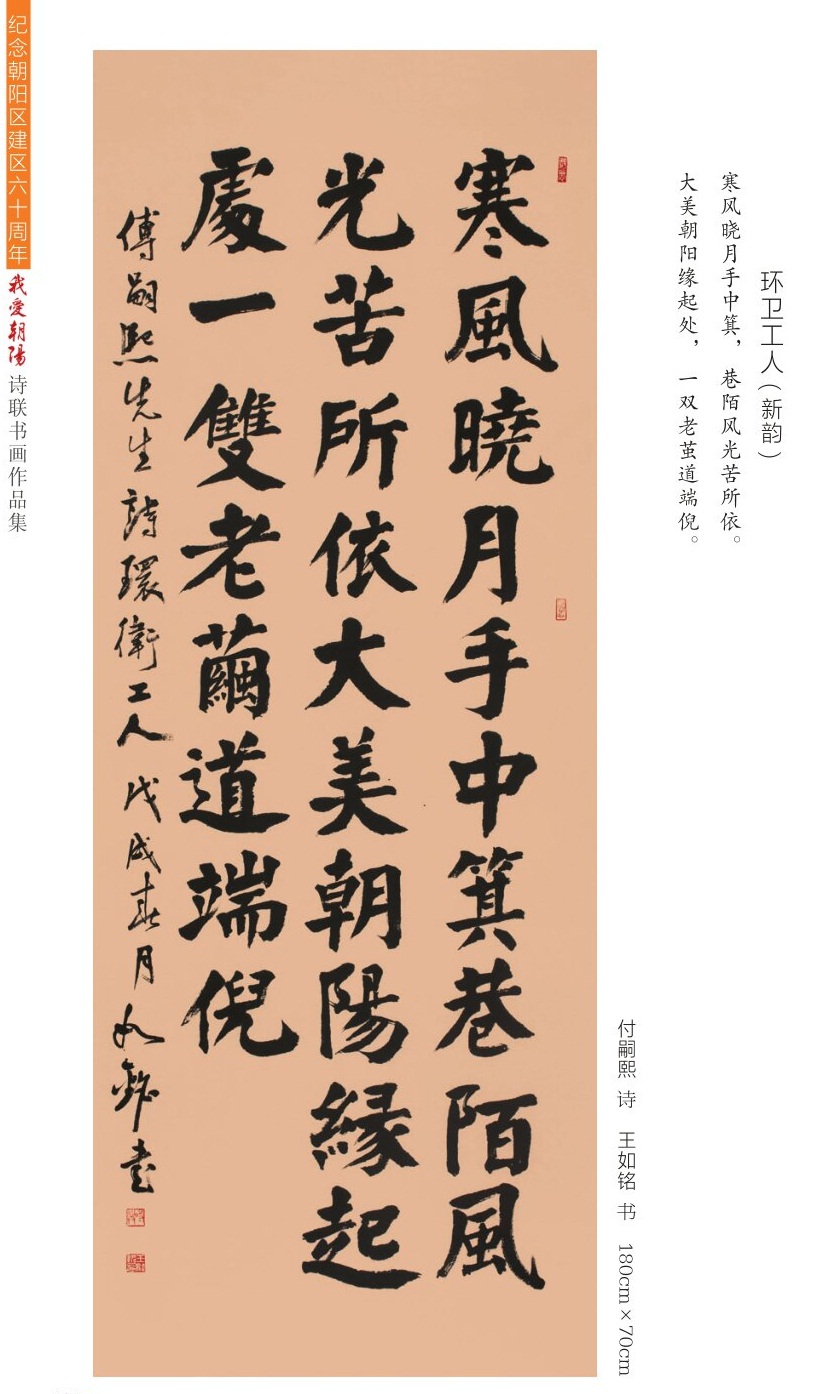 环卫工人（新韵）
寒风晓月手中箕，巷陌风光苦所依。
大美朝阳缘起处，一双老茧道端倪。
付嗣熙 诗 王如铭 书 180cm×70cm
寒風曉月手中箕巷陌風
光苦所依大美朝陽緣起
處一雙老繭道端倪
傅嗣熙先生詩環衛工人 戊戌春月 如銘書
纪念朝阳区建区六十周年 我爱朝陽 诗联书画作品集